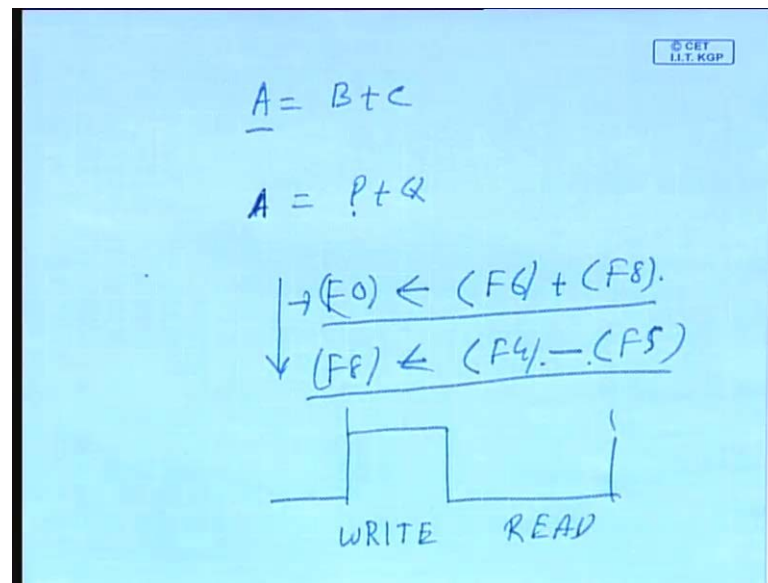 © CET
I.I.T. KGP
A = B+C
A = P+Q
→ (F0) ← (F6) + (F8).
(F8) ← (F4) — (F5)
WRITE READ